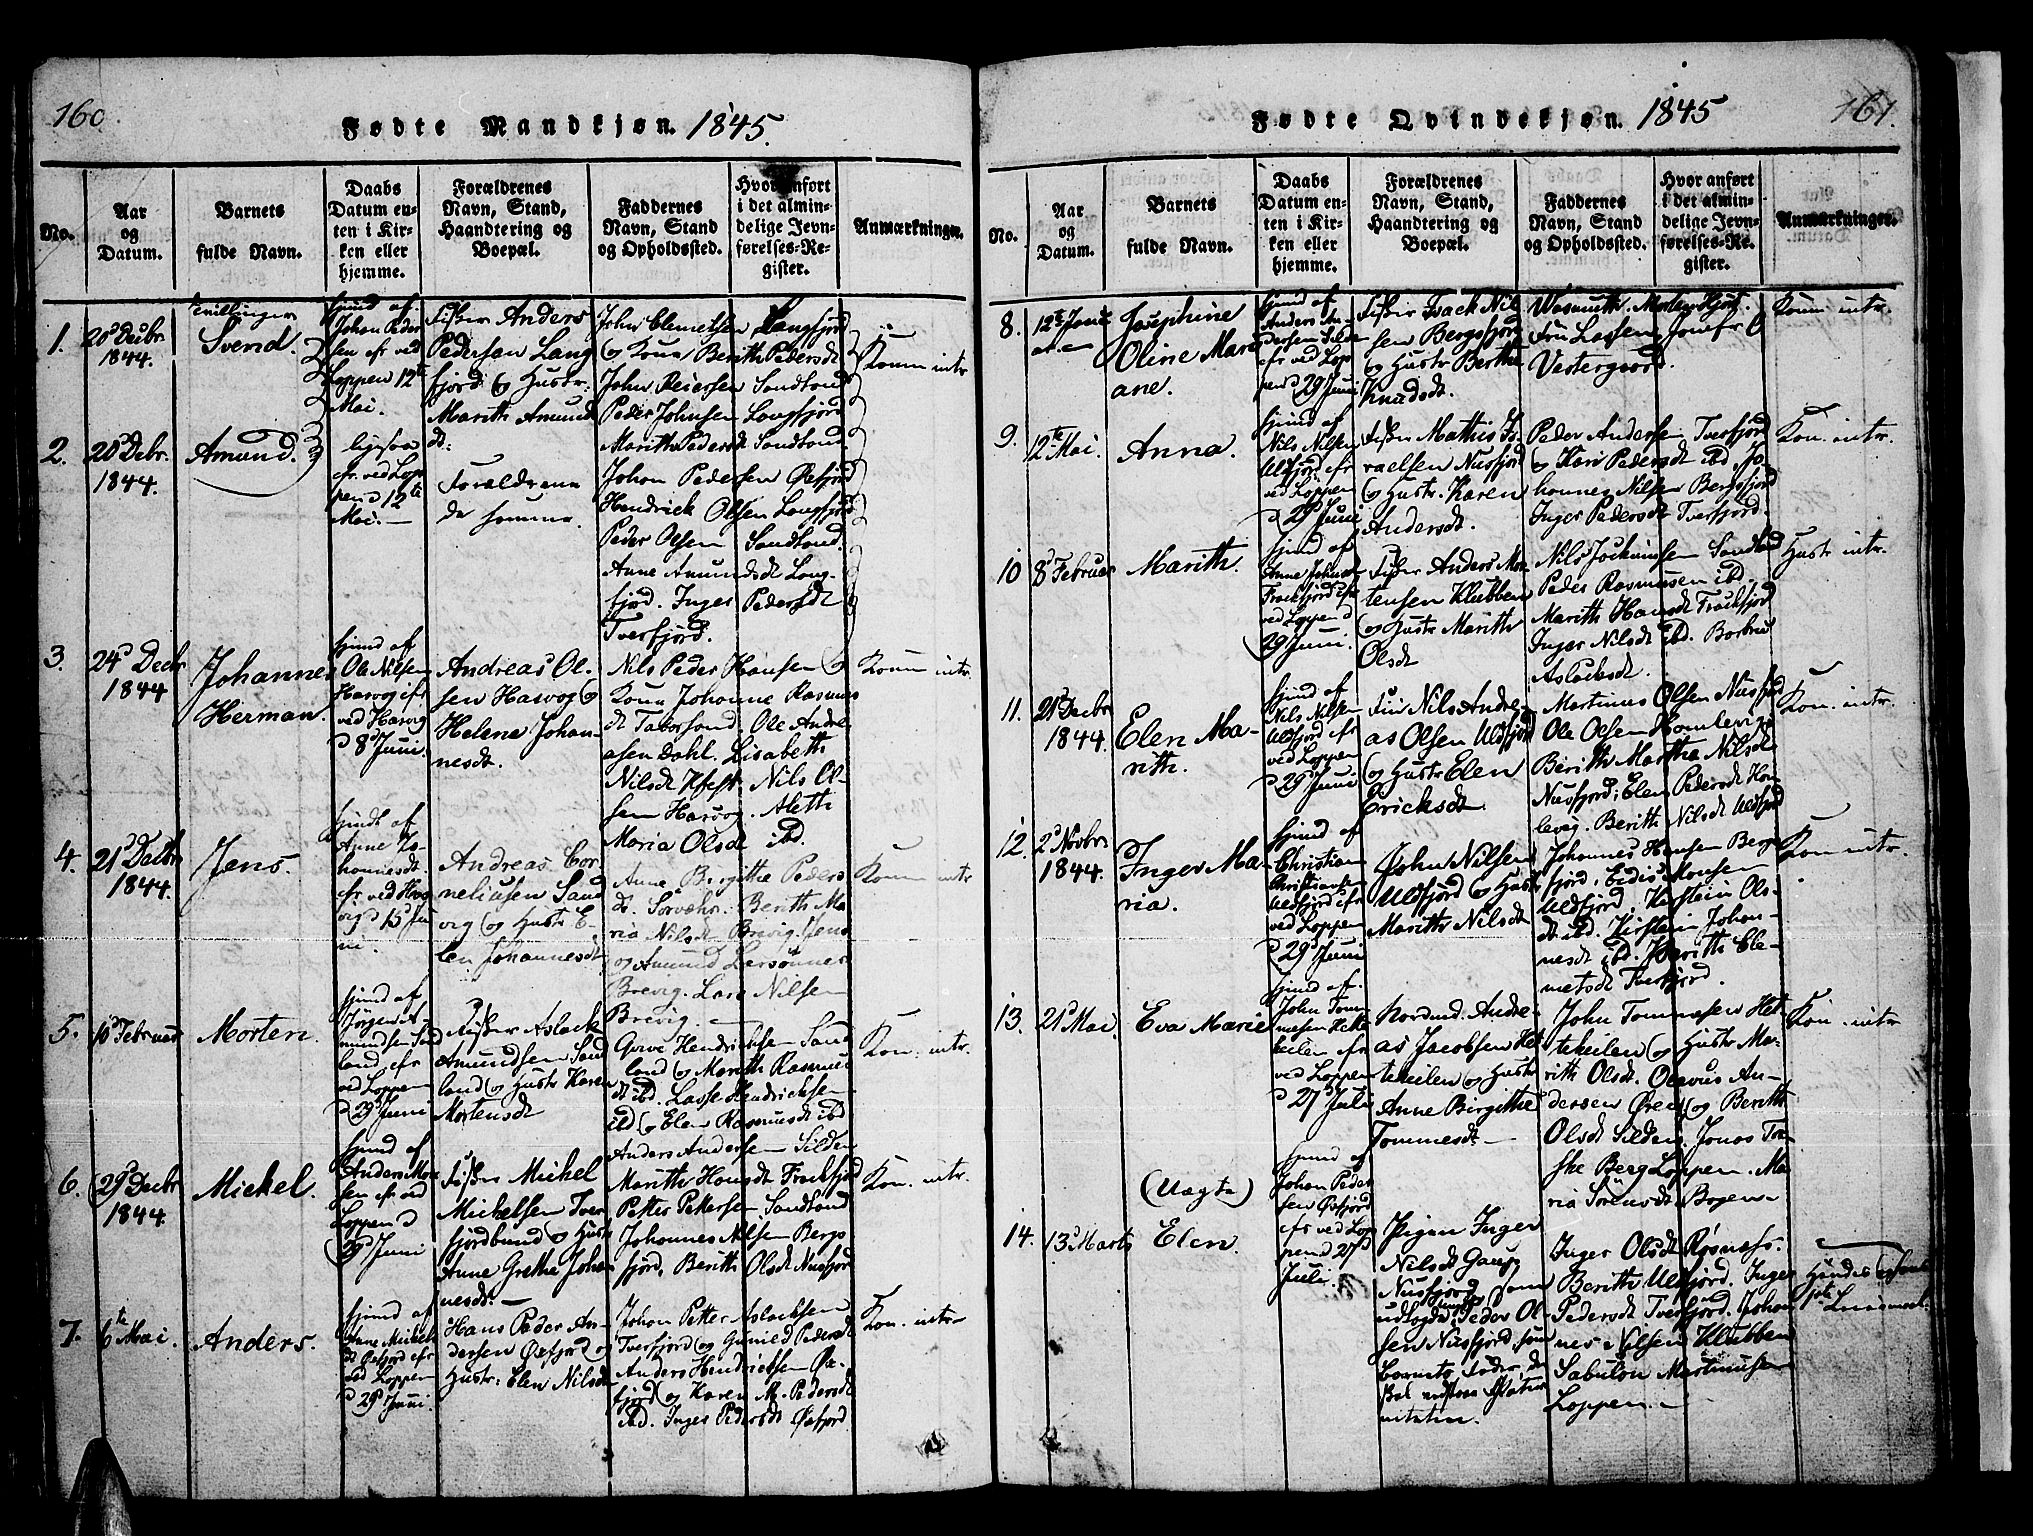 160.
Fødte Mandkjøn. 1845.
No.
Aar
og
Datum.
Barnets
fulde Navn.
Daabs
Datum en-
ten i Kir-
ken eller
hjemme.
Forældrenes
Navn, Stand,
Haandtering og
Boepæl.
Faddernes
Navn, Stand
og Opholdssted.
Hvor anført
i det almin-
delige Jevn-
førelses-Re-
gister.
Anmærkninger.
1.
20d Decbr
1844.
Tvillinger
Svend.
hjemd af
Johan Peder
sen efr ved
Loppen 12te
Mai.
Fisker Anders
Pedersen Lang
fjord og Hustr.
Marith Amund
dt.
John Clemetsen Langfjord
og Kona Berith Pedersdt
John Reiersen Sandland
Peder Johnsen Langfjord
Marith Pedersdt Sandland
Konen intr
2.
20d Debr.
1844.
Amund.
ligesaa
efr. ved Lop
pen d 12te
Mai.
Forældrene
de samme.
Johan Pedersen Øxfjord
Hendrick Olsen Langfjord
Peder Olsen Sandland.
Anne Amundsdt Lang-
fjord. Inger Pedersdt
Tverfjord.
3.
24d Decbr
1844
Johannes
Herman.
hjemd af
Ole Nilsen
Hasvog efr
ved Hasvig
d 8d Juni.
Andreas Ol-
sen Hasvog og
Helene Johan-
nesdt.
Nils Peder Hansen og
Kona Johanne Rasmus
dt Taborsand. Ole Andre-
asen Dahl. Lisabeth
Nilsdt Nils Ol-
sen Hasvog. Aleth
Maria Olsdt ibd.
Konen intr
4.
21d Decbr
1844
Jens.
hjemdt af
Anne Jo-
hannesdt.
efr. ved Has
vig d 15 Ju
ni.
Andreas Cor-
neliusen Sand
vig og Hustr E-
len Johannesdt
Anne Bergithe Peders
dt. Sørvær. Berith Ma
ria Nilsdt Brevig. Jens
og Amund Larsønner
Brevig. Lars Nilsen
Brevig.
Konen intr
5.
10d Februar
Morten.
hjemd af
Jørgen A-
mundsen Sand
land efr
ved Loppen
d 29d Juni
Fisker Aslack
Amundsen Sand
land og Hustr Karen
Mortensdt
Hendricksen Sand
land og Marith Rasmus
dt ibd. Lasse Hendricksen
ibd og Elen Rasmusdt ibd
Anders Andersen Silden
Kon. intr.
6.
29d Decbr
1844.
Mickel.
hjemd af
Anders Mor
sen efr ved
Loppen d
29d Juni
Fisker Mickel
Mickelsen Tver
fjordbund og Hustr
Anne Grethe Johan
nesdt.
Marith Hansdt Frackfjord
Petter Pettersen Sandland
Johannes Nilsen Bergs
fjord. Berith Olsdt Nusfjord
Kon. intr.
7.
6te Mai
Anders.
hjemd af
Anne Mickels
dt Øxfjord efr
ved Loppen
d 29d Juni.
Hans Peder An-
dersen Øxfjord og
Hustr. Elen Nilsdt
Johan Petter Aslacksen
Tverfjord og Gunild Pedersdt
Anders Hendricksen Øx-
fjord og Karen M. Pedersdt
ibd. Inger Pedersdt Øxfjord
Kon. intr
Fødte Qvindekjøn. 1845
161.
No.
Aar
og
Datum.
Barnets
fulde Navn.
Daabs
Datum en-
ten i Kir-
ken eller
hjemme.
Forældrenes
Navn, Stand,
Haandtering og
Boepæl.
Faddernes
Navn, Stand
og Opholdssted.
Hvor anført
i det almin-
delige Jevn-
førelses-Re-
gister.
Anmærkninger.
8.
Josephine
Oline Mari
ane.
hjemd af
Anders An-
dersen Silde
efr ved Lop
pen d 29 Juni
Fisker Isack Nil
sen Bergsfjord
og Hustr Berthe
Knudsdt.
Fru Lassen, Jomfr
Vestergaard.
Konen intr.
9.
12te Mai.
Anna.
hjemd af
Nils Nilsen
Ulsfjord efr
ved Loppen
d 29 Juni
Fisker Mathis Is
raelsen Nusfjord
og Hustr. Karen
Andersdt.
Peder Andersen Tverfjord
og Kari Pedersdt ibd. Jo-
hannes Nilsen Bergsfjord
Inger Pedersdt Tverfjord.
Kon. intr.
10
8d Februar
Marith.
hjemd af
Anne Johnsdt
Frackfjord efr
ved Loppen d
29 Juni.
Fisker Anders Mor-
tensen Klubben
og Hustr Marith
Olsdt
Nils Jochumsen Sandland
Peder Rasmusen ibd.
Marith Hansdt Frackfjord
Inger Nilsdt ibd. Barbru
Aslacksdt.
Hustr intr.
11.
21d Decbr
1844.
Elen Ma-
rith.
hjemd af
Nils Nilsen
Ulsfjord efr
ved Loppen
d 29 Juni
Fin Nils Andre-
as Olsen Ulsfjord
og Hustr Elen
Ericksdt
Martinus Olsen Nusfjord
Ole Olsen Komlevig
Berith Martha Nilsdt
Nusfjord; Elen Pedersdt Kom
levig. Berith Nilsdt Ulsfjord
Kon. intr.
12.
2d Novbr
1844.
Inger Ma-
ria.
hjemd af
Christian
Christiansen
Ulsfjord efr
ved Loppen
d 29d Juni
John Nilsen
Ulsfjord og Hustr
Marith Nilsdt
Johannes Hansen Bergs
fjord, Monsen
Ulsfjord. Kirsten Ols-
dt ibd. Kirsten Johan-
nesdt ibd. Berith Cle-
metsdt Tverfjord.
Kon intr.
13.
21d Mai
Eva Marie
hjemd af
John Tom
masen Hette
keilen efr
ved Loppen
d 27 Juli
Nordmd. Andre-
as Jacobsen Het
tekeilen og Hustr
Anne Birgithe
Tommesdt.
John Tommasen Het-
tekeilen og Hustr Ma-
rith Olsdt. Olavus An-
dersen Øren og Berith
Olsdt Silden. Jonas Tor-
ske Berg Loppen. Ma-
ria Sørensdt Bogen
Kon. intr
14.
13d Marts
(Uægte)
Elen.
hjemd af
Johan Peder
sen Øxfjord
efr ved Lop
pen d 27d
Juli.
Pigen Inger
Nilsdt Gaup
Nusfjord, som
udlagde Peder Ol-
sen Nusfjord som
Barnets Fader
Inger Olsdt Røsnæss.
Berith Ulsfjord. Inger
Pedersdt Tverfjord. Johan
nes Nilsen Klubben
Sabulon Martinusen
Loppen.